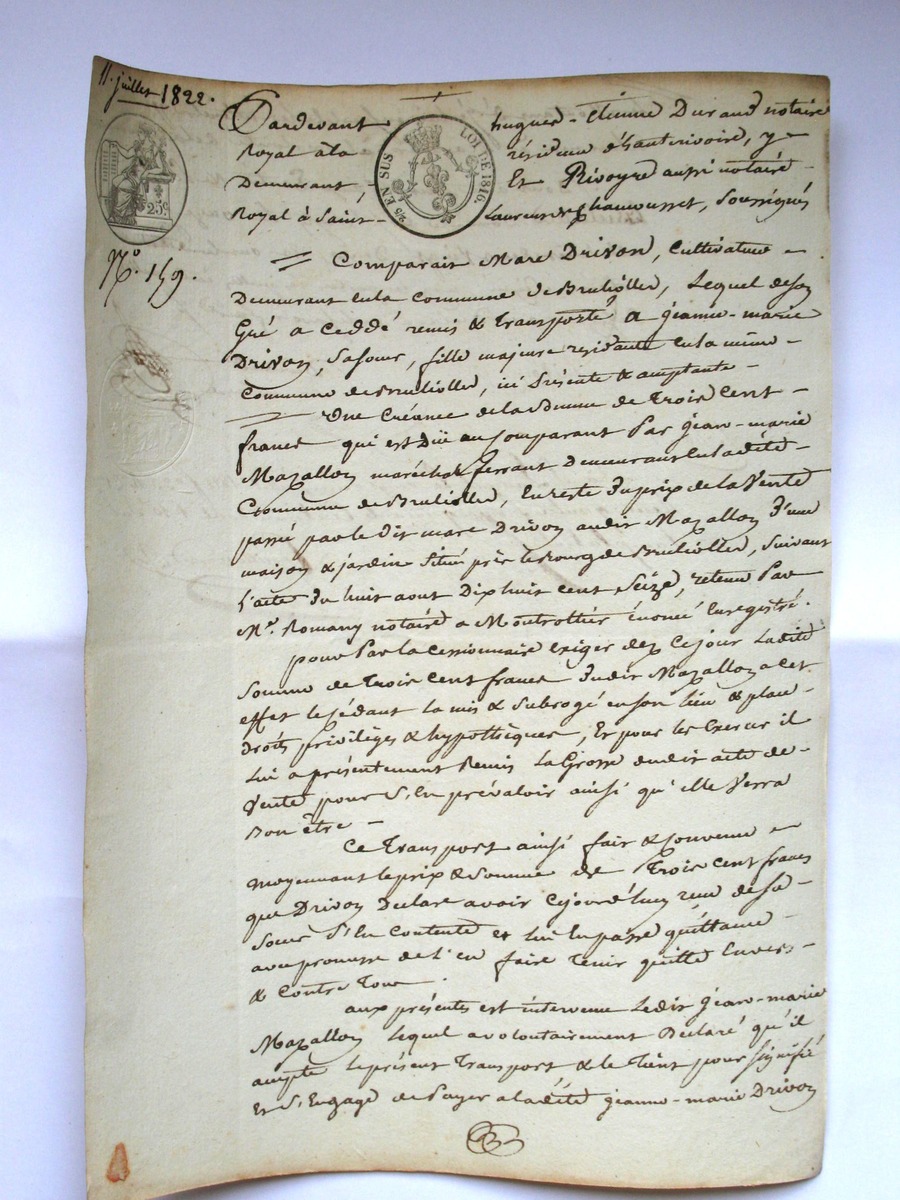 11. juillet 1822.
Pardevant hugues-Etienne Durand notaire
Royal à la résidence d'hauterivoire, y
Demeurant, Et Rivoyre aussi notaire
Royal à Saint-Laurent de Chamousset, Soussignés
25 EN SUS LOI DE 1816.
25c
N.º 159.
Comparait Marc Drivon, Cultivateur
Demeurant en la Commune de Brulioller, Lequel de son
Gré a Ceddé remis & transporté a Jeanne-marie
Drivon, Sa Soeur, fille majeure residante en la même
Commune de Brulioller, ici présente & acceptante
Une Créance de la Somme de Trois Cent
francs qui est Düe au Comparant Par Jean-marie
Mazallon maréchal ferrant Demeurant en la dite
Commune de Brulioller, En reste du prix de la Vente
passé par le dit marc Drivon au dit Mazallon d'une
maison & jardin Situés près le Bourg de Brulioller, suivant
l'acte du huit aout Dix huit cent Seize, retenu Par
Me. Romany notaire a Montrottier énoncé Enregistré.
pour Par la cessionnaire exiger dez Ce jour La dite
Somme de Trois Cent francs du dit Mazallon a cet
effet le Cédant la mis & Subrogé en son lieu & place
droits privilèges & hypothèques, Et pour les Exercer il
Lui a présentement Remis La Grosse du dit acte de
Vente pour S'En prévaloir ainsi qu'elle Verra
Bon être
Ce Transport ainsi fait & Convenu
moyennant le prix & Somme de Trois Cent francs
que Drivon Declare avoir Cejourd'huy reçu de Sa
Soeur S'En Contente et lui En passe quittance
avec promesse de l'en faire Tenir quitte Envers
& Contre Tous.
aux présentes est intervenu Ledit Jean-marie
Mazallon Lequel a volontairement Déclaré qu'il
accepte le présent Transport & le Tient pour Signifié
Et S'Engage de Payer a la dite Jeanne-marie Drivon